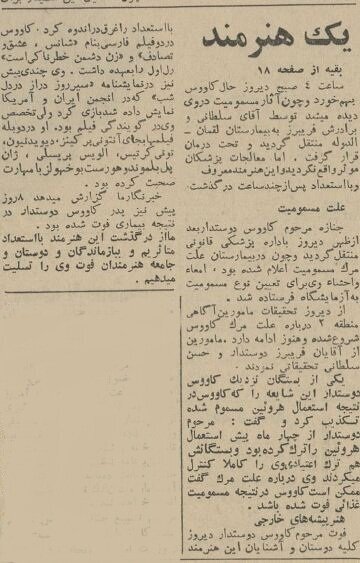 یک هنرمند
بقیه از صفحه ۱۸
ساعت ۴ صبح دیروز حال کاووس
بهم خورد و چون آثار مسمومیت در وی
دیده میشد توسط آقای سلطانی و
برادرش فریبرز به بیمارستان لقمان ـ
الدوله منتقل گردید و تحت درمان
قرار گرفت . اما معالجات پزشکان
موثر واقع نگردید و این هنرمند معروف
و با استعداد پس از چند ساعت درگذشت
علت مسمومیت
جنازه مرحوم کاووس دوستدار بعد
از ظهر دیروز باداره پزشکی قانونی
منتقل گردید و چون در بیمارستان علت
مرگ مسمومیت اعلام شده بود ، امعاء
و احشاء وی برای تعیین نوع مسمومیت
به آزمایشگاه فرستاده شد .
از دیروز تحقیقات مامورین آگاهی
منطقه ۲ درباره علت مرگ کاووس
شروع شده و هنوز ادامه دارد . مامورین
از آقایان فریبرز دوستدار و حسن
سلطانی تحقیقاتی نمودند .
یکی از بستگان نزدیک کاووس
دوستدار این شایعه را که کاووس در
نتیجه استعمال هروئین مسموم شده
تکذیب کرد و گفت : مرحوم
دوستدار از چهار ماه پیش استعمال
هروئین را ترک کرده بود و بستگانش
هم ترک اعتیاد وی را کاملا کنترل
میکردند وی درباره علت مرگ گفت
ممکن است کاووس در نتیجه مسمومیت
غذائی فوت شده باشد .
هنرپیشه‌های خارجی
فوت مرحوم کاووس دوستدار دیروز
کلیه دوستان و آشنایان این هنرمند
با استعداد را غرق در اندوه کرد . کاووس
در دو فیلم فارسی بنام «شانس ، عشق و
تصادف» و «زن دشمن خطرناکی است»
رل اول را بعهده داشت . وی چندی پیش
نیز در نمایشنامه «سیر روز در از در دل
شب» که در انجمن ایران و آمریکا
نمایش داده شد بازی کرد ولی تخصص
وی در گویندگی فیلم بود . او در دوبله
فیلمها بجای آنتونی پرکینز ، دیوید نیون ،
تونی کرتیس ، الویس پریسلی ، ژان
پل بلموندو و هورست بوخهولز با مهارت
صحبت کرده بود .
خبرنگار ما گزارش میدهد ۸ روز
پیش نیز پدر کاووس دوستدار در
نتیجه بیماری فوت شده بود .
ما از درگذشت این هنرمند با استعداد
متاثریم و ببازماندگان و دوستان و
جامعه هنرمندان فوت وی را تسلیت
میدهیم .